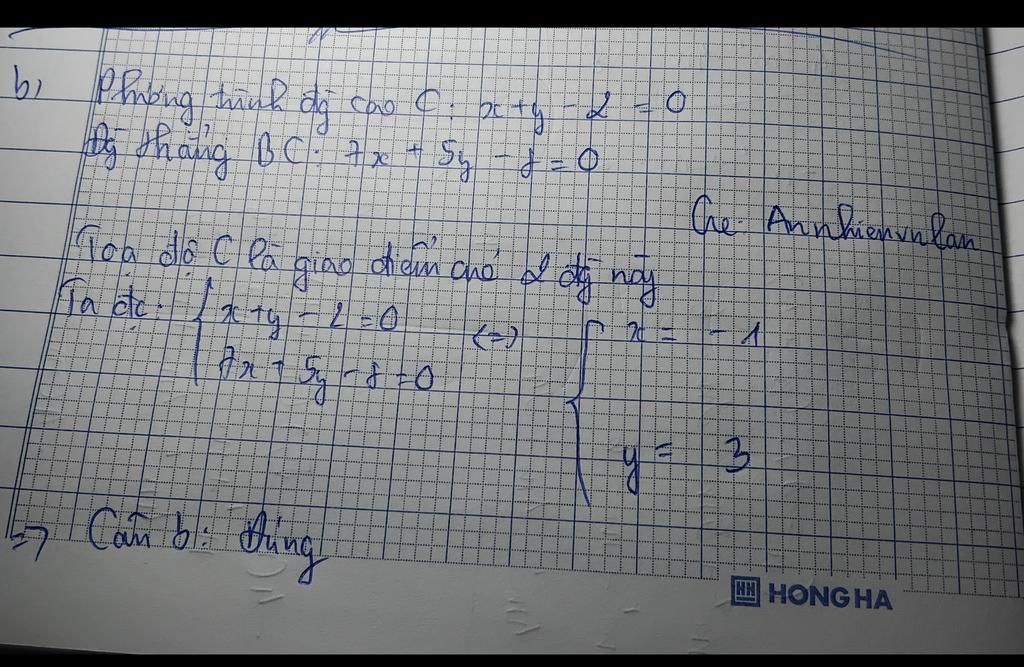 b) Phương trình đg cao C: x + y - 2 = 0
Đg thẳng BC: 7x + 5y - 8 = 0
Cre: Annhienvnlan
Toạ độ C là giao điểm của 2 đg này
Ta đc: { x + y - 2 = 0 (=) { x = - 1
7x + 5y - 8 = 0
y = 3
=> Câu b: đúng
HONG HA